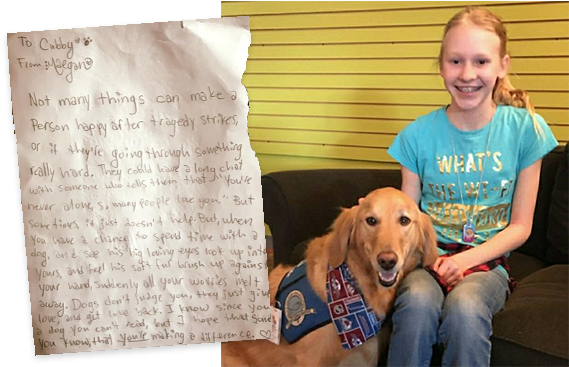 To Cubby
From: Maegan
Not many things can make a
Person happy after tragedy strikes,
or if they're going through something
really hard. They could have a long chat
with someone who tells them that "You're
never alone, so many people love you." But
sometimes it just doesn't help. But, when
you have a chance to spend time with a
dog, and see his big loving eyes look up into
yours, and feel his soft fur brush up against
your hand, suddenly all your worries melt
away. Dogs don't judge you, they just give
love, and get love back. I know since you're
a dog you can't read, but I hope that somehow
you know, that you're making a difference.
WHAT'S
THE WI-FI